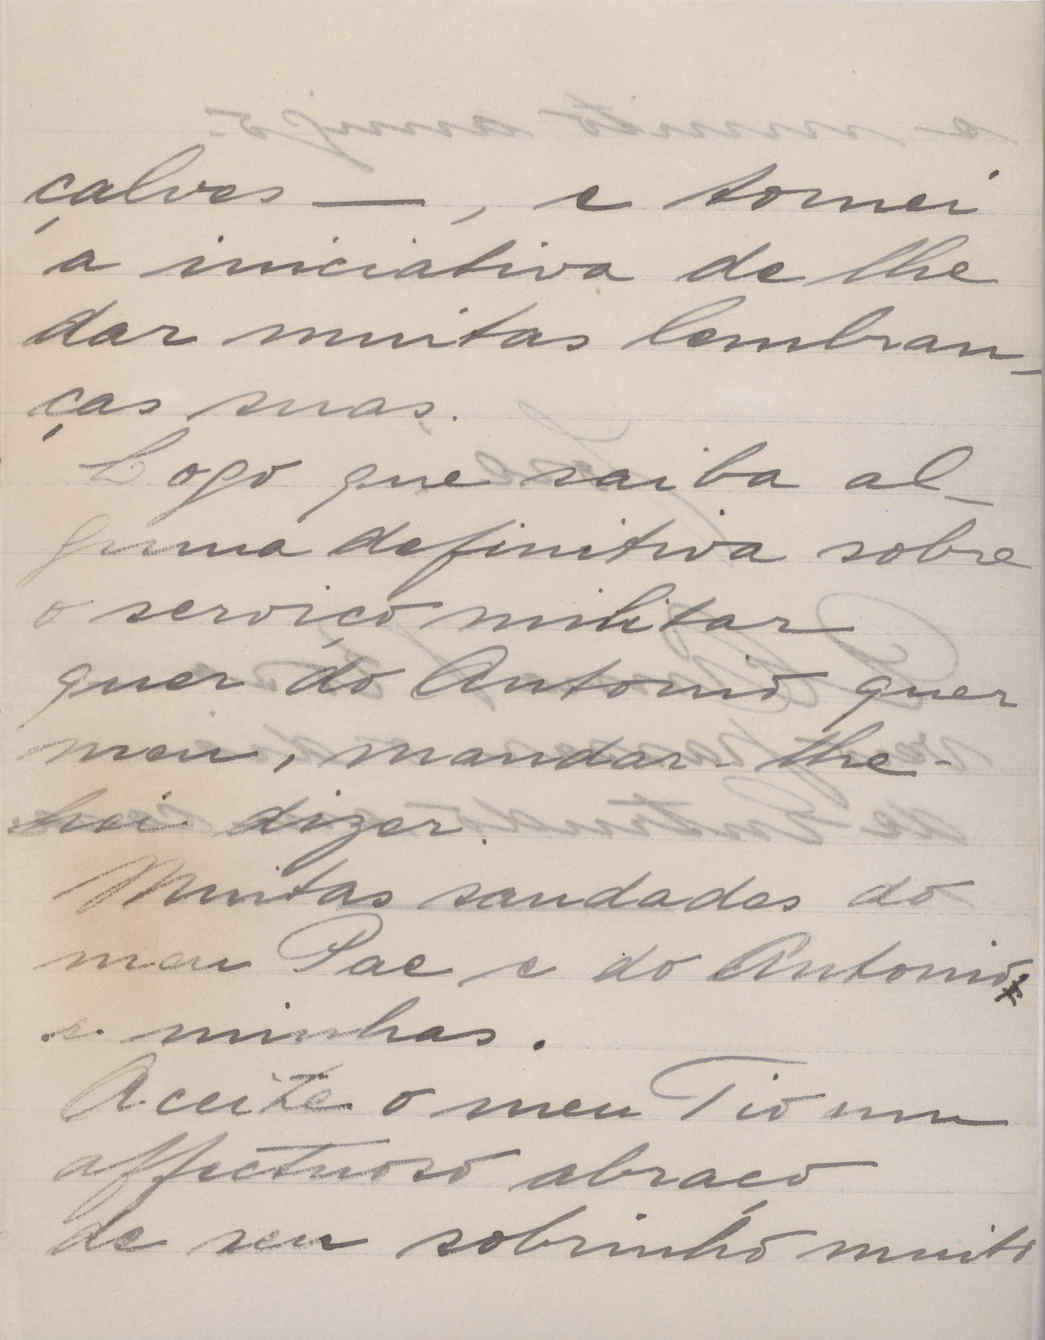 çalves —, e tomei
a iniciativa de lhe
dar muitas lembran-
ças suas.
Logo que saiba al-
guma definitiva sobre
o serviço militar
quer do Antonio quer
meu, mandar-lhe-
hei dizer.
Muitas saudades do
meu Pae e do Antonio
e minhas.
Aceite o meu Tio um
affectuoso abraço
de seu sobrinho muito